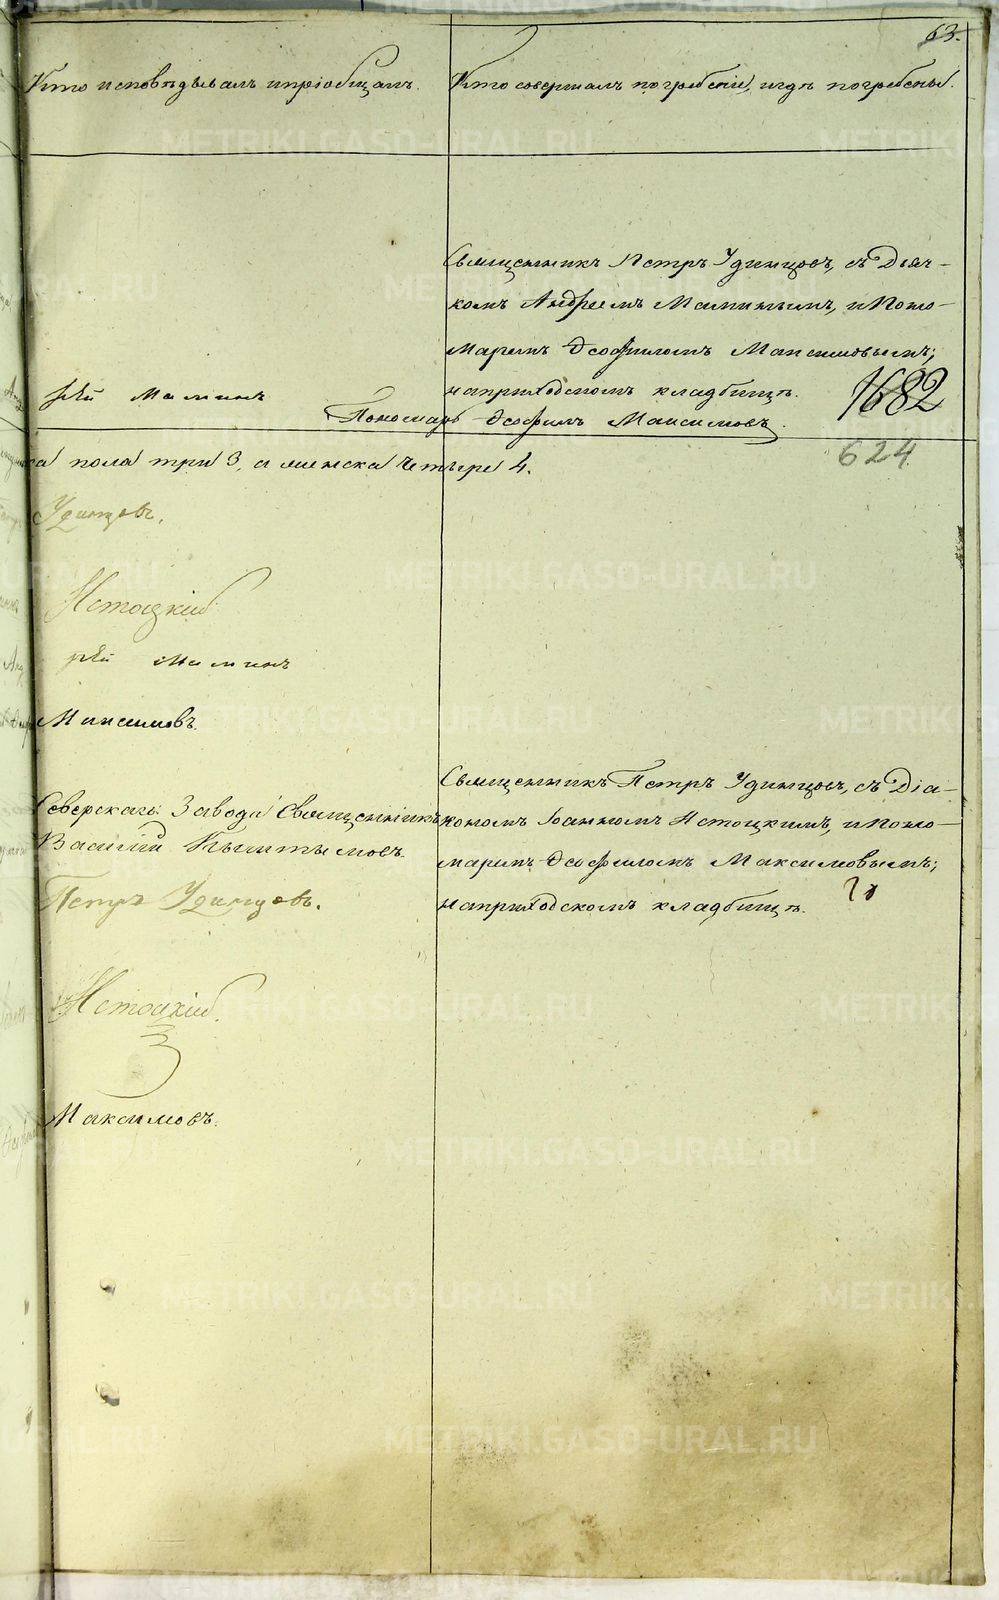 63.
Кто исповѣдывалъ и пріобщалъ.
Кто совершалъ погребеніе, и гдѣ погребены.
Священникъ Петръ Удинцовъ, съ Дьяч-
комъ Андреемъ Маминымъ, и Поно-
маремъ Ѳеофиломъ Максимовымъ;
на приходскомъ кладбищѣ.
1682
рей Маминъ
Пономарь Ѳеофилъ Максимовъ.
624
ка пола три 3, а женска четыре 4.
Удинцовъ.
Истоцкій
рей Маминъ
Максимовъ.
Сѣверскаго Завода Священникъ
Василій Кыштымовъ.
Петръ Удинцовъ.
Священникъ Петръ Удинцовъ, съ Діа-
кономъ Іоанномъ Истоцкимъ, и Поно-
маремъ Ѳеофиломъ Максимовымъ;
на приходскомъ кладбищѣ.
Истоцкій
Максимовъ.
METRIKI.GASO-URAL.RU